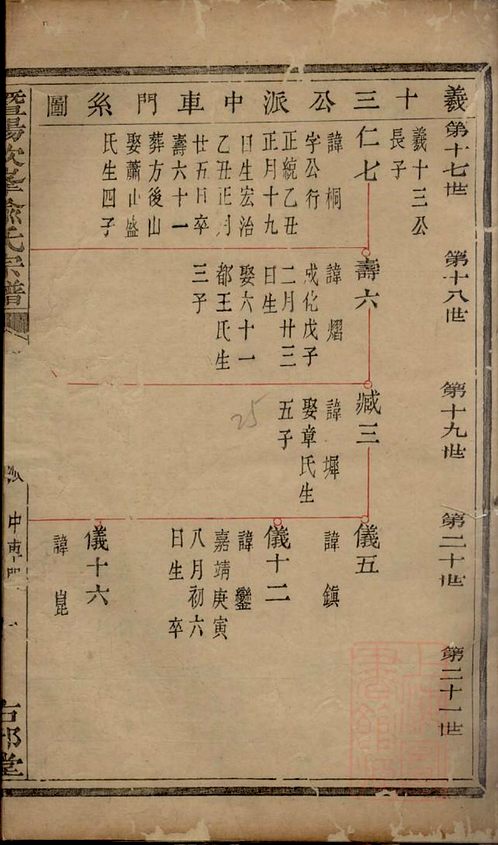 義十三公派中車門系圖
第十七世
第十八世
第十九世
第二十世
第二十一世
義十三公
長子
仁七
諱桐
字公行
正統乙丑
正月十九
日生宏治
乙丑正月
廿五日卒
壽六十一
葬方後山
娶蕭山盛
氏生四子
壽六
諱熠
成化戊子
二月廿三
日生
娶六十一
都王氏生
三子
臧三
諱墀
娶章氏生
五子
儀五
諱鎮
儀十二
諱鑾
嘉靖庚寅
八月初六
日生 卒
儀十六
諱崑
25
暨陽次峯俞氏宗譜
中車門